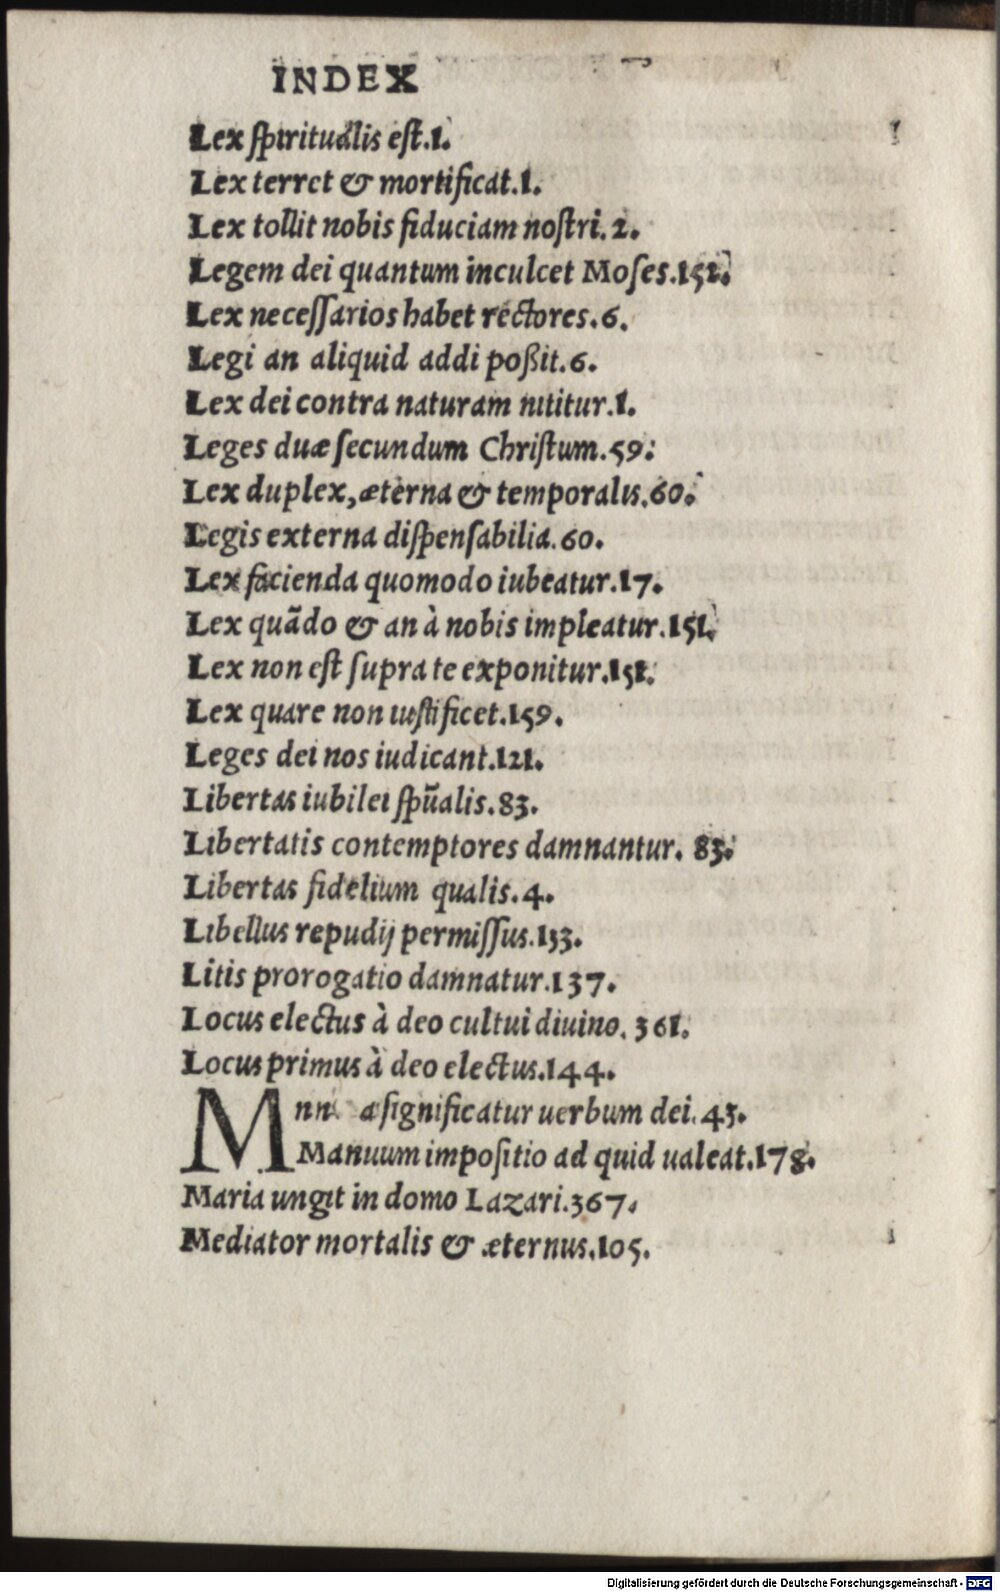 INDEX
Lex ſpiritualis eſt.1.
Lex terret & mortificat.1.
Lex tollit nobis fiduciam noſtri.2.
Legem dei quantum inculcet Moſes.151.
Lex neceſſarios habet rectores.6.
Legi an aliquid addi poßit.6.
Lex dei contra naturam nititur.1.
Leges duæ ſecundum Chriſtum.59.
Lex duplex, æterna & temporalis.60.
Legis externa diſpenſabilia.60.
Lex facienda quomodo iubeatur.17.
Lex quãdo & an à nobis impleatur.151.
Lex non eſt ſupra te exponitur.151.
Lex quare non iuſtificet.159.
Leges dei nos iudicant.121.
Libertas iubilei ſpũalis.83.
Libertatis contemptores damnantur. 83.
Libertas fidelium qualis.4.
Libellus repudij permiſſus.133.
Litis prorogatio damnatur.137.
Locus electus à deo cultui diuino. 361.
Locus primus à deo electus.144.
Mnn æ ſignificatur uerbum dei.43.
Manuum impoſitio ad quid ualeat.178.
Maria ungit in domo Lazari.367.
Mediator mortalis & æternus.105.
Digitalisierung gefördert durch die Deutsche Forschungsgemeinschaft - DFG